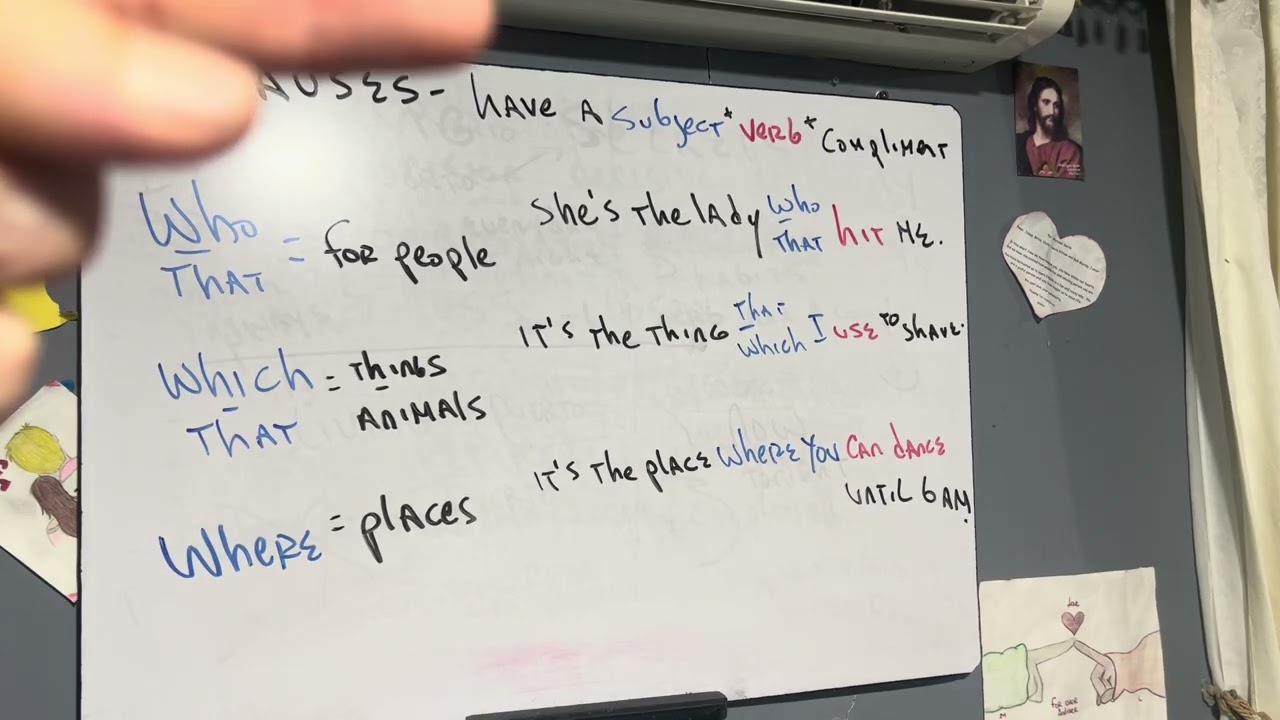 HAVE A Subject* Verb* Compliment
Who
THAT = for people
She's the lady who
THAT hit ME.
Which = things
THAT ANIMALS
IT'S the THING THAT
which I use TO Shave.
Where = places
IT'S the place where you can dance
UNTIL 6 AM.
love
for ever
M
L